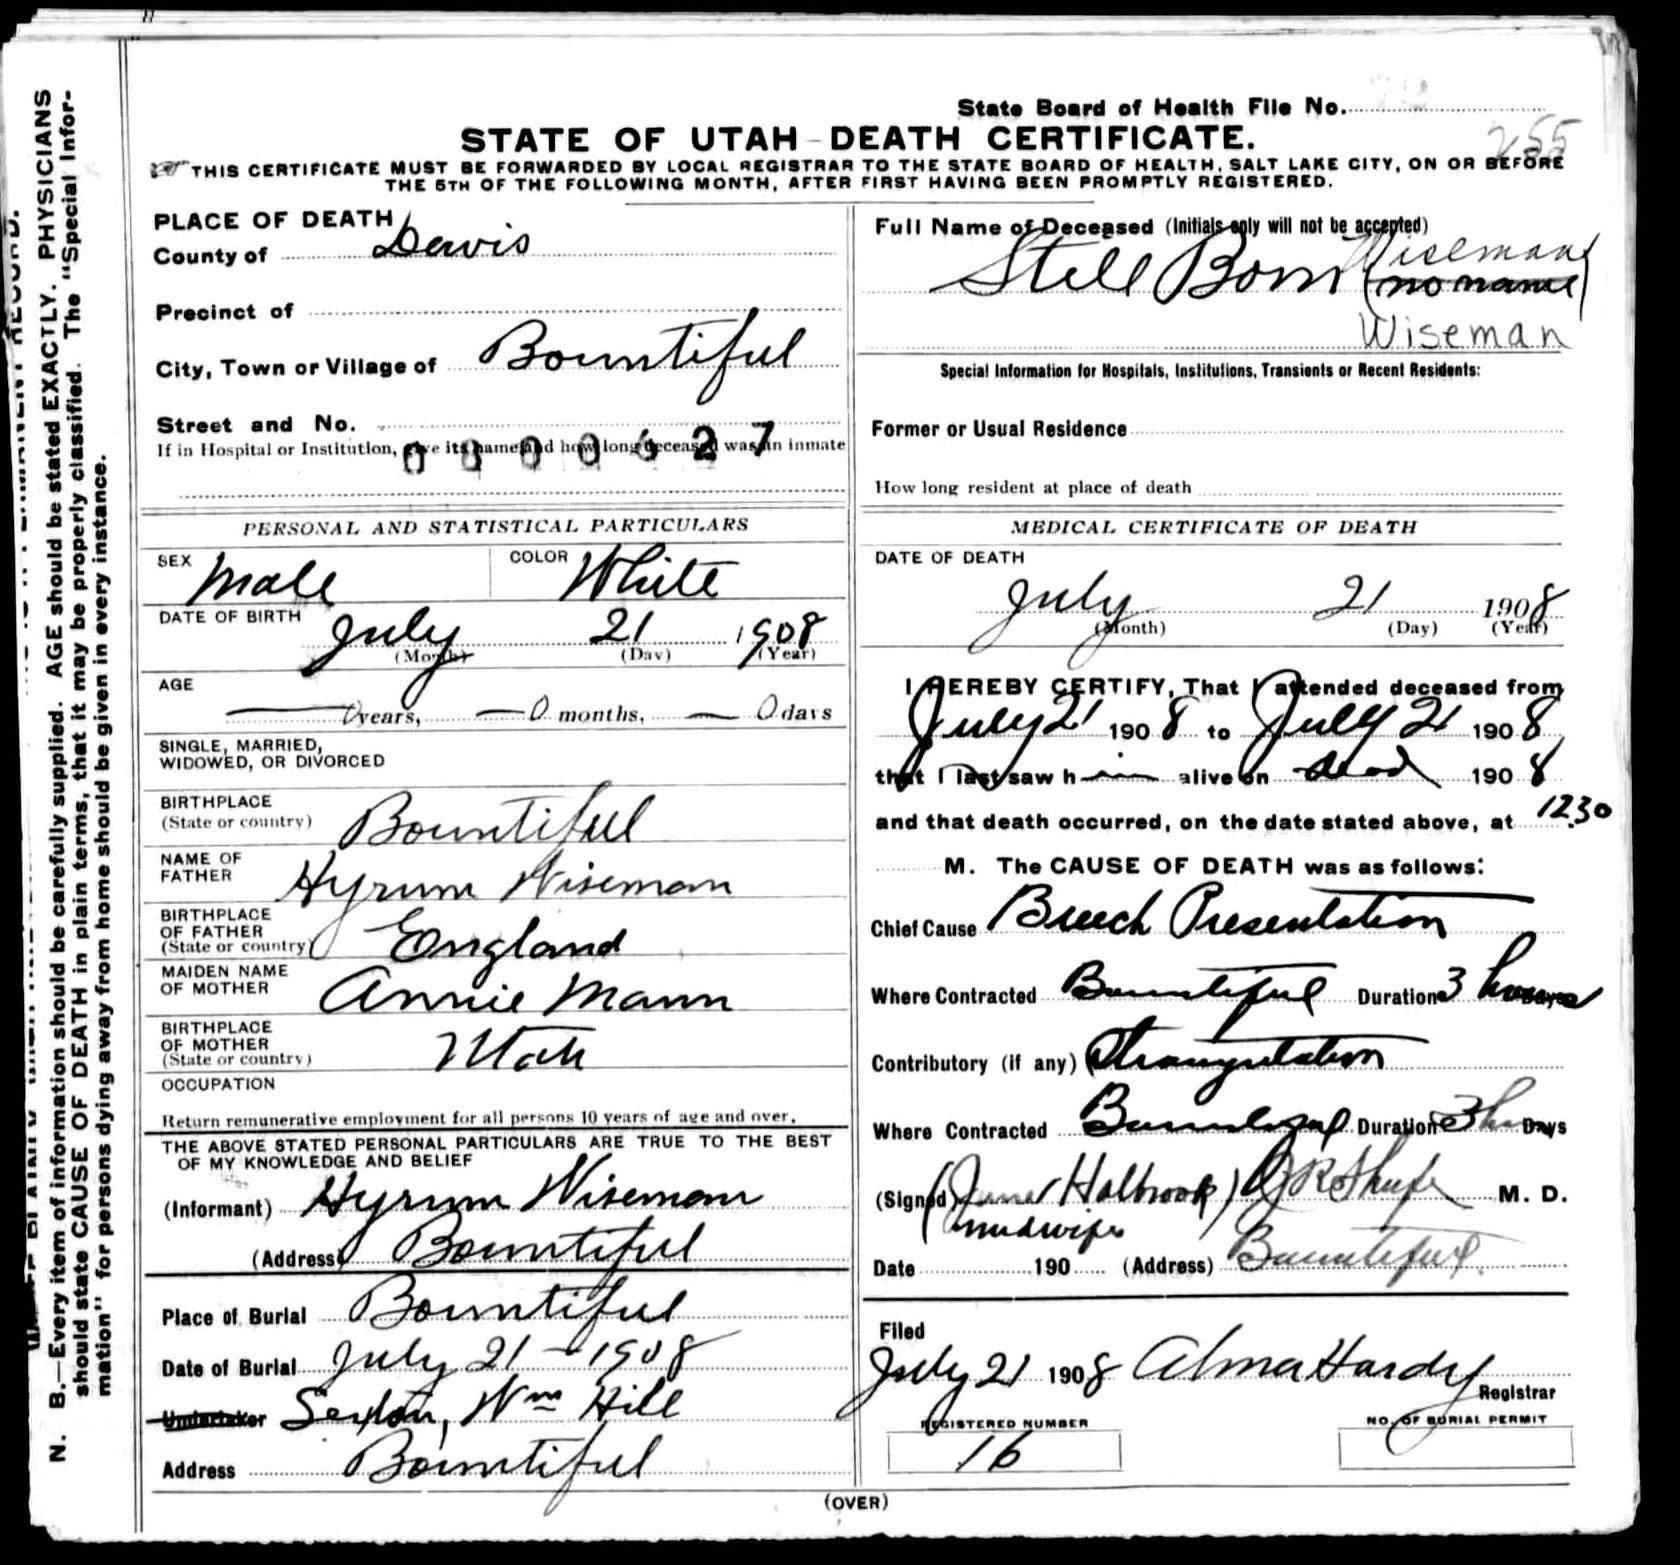 State Board of Health File No.
255
STATE OF UTAH - DEATH CERTIFICATE.
THIS CERTIFICATE MUST BE FORWARDED BY LOCAL REGISTRAR TO THE STATE BOARD OF HEALTH, SALT LAKE CITY, ON OR BEFORE
THE 5TH OF THE FOLLOWING MONTH, AFTER FIRST HAVING BEEN PROMPTLY REGISTERED.
N. B.—Every item of information should be carefully supplied. AGE should be stated EXACTLY. PHYSICIANS
should state CAUSE OF DEATH in plain terms, that it may be properly classified. The "Special Infor-
mation" for persons dying away from home should be given in every instance.
PLACE OF DEATH
County of Davis
Precinct of
City, Town or Village of Bountiful
Street and No.
If in Hospital or Institution, give its name and how long deceased was an inmate
0 8 0 0 6 2 7
PERSONAL AND STATISTICAL PARTICULARS
SEX Male COLOR White
DATE OF BIRTH July 21 1908
(Month) (Day) (Year)
AGE 0 years, 0 months, 0 days
SINGLE, MARRIED,
WIDOWED, OR DIVORCED
BIRTHPLACE
(State or country) Bountiful
NAME OF
FATHER Hyrum Wiseman
BIRTHPLACE
OF FATHER
(State or country) England
MAIDEN NAME
OF MOTHER Annie Mann
BIRTHPLACE
OF MOTHER
(State or country) Utah
OCCUPATION
Return remunerative employment for all persons 10 years of age and over.
THE ABOVE STATED PERSONAL PARTICULARS ARE TRUE TO THE BEST
OF MY KNOWLEDGE AND BELIEF
(Informant) Hyrum Wiseman
(Address) Bountiful
Place of Burial Bountiful
Date of Burial July 21 - 1908
Undertaker Sexton, Wm Hill
Address Bountiful
Full Name of Deceased (Initials only will not be accepted)
Wiseman
Still Born (no name)
Wiseman
Special Information for Hospitals, Institutions, Transients or Recent Residents:
Former or Usual Residence
How long resident at place of death
MEDICAL CERTIFICATE OF DEATH
DATE OF DEATH
July 21 1908
(Month) (Day) (Year)
I HEREBY CERTIFY, That I attended deceased from
July 21 1908 to July 21 1908
that I last saw him alive on dead 1908
and that death occurred, on the date stated above, at 12.30
M. The CAUSE OF DEATH was as follows:
Chief Cause Breech Presentation
Where Contracted Bountiful Duration 3 hours
Contributory (if any) Strangulation
Where Contracted Bountiful Duration 3 hrs Days
(Signed) Holbrook) M. D.
midwife
Date 190 (Address) Bountiful
Filed
July 21 1908 Alma Hardy
Registrar
REGISTERED NUMBER
16
NO. OF BURIAL PERMIT
(OVER)